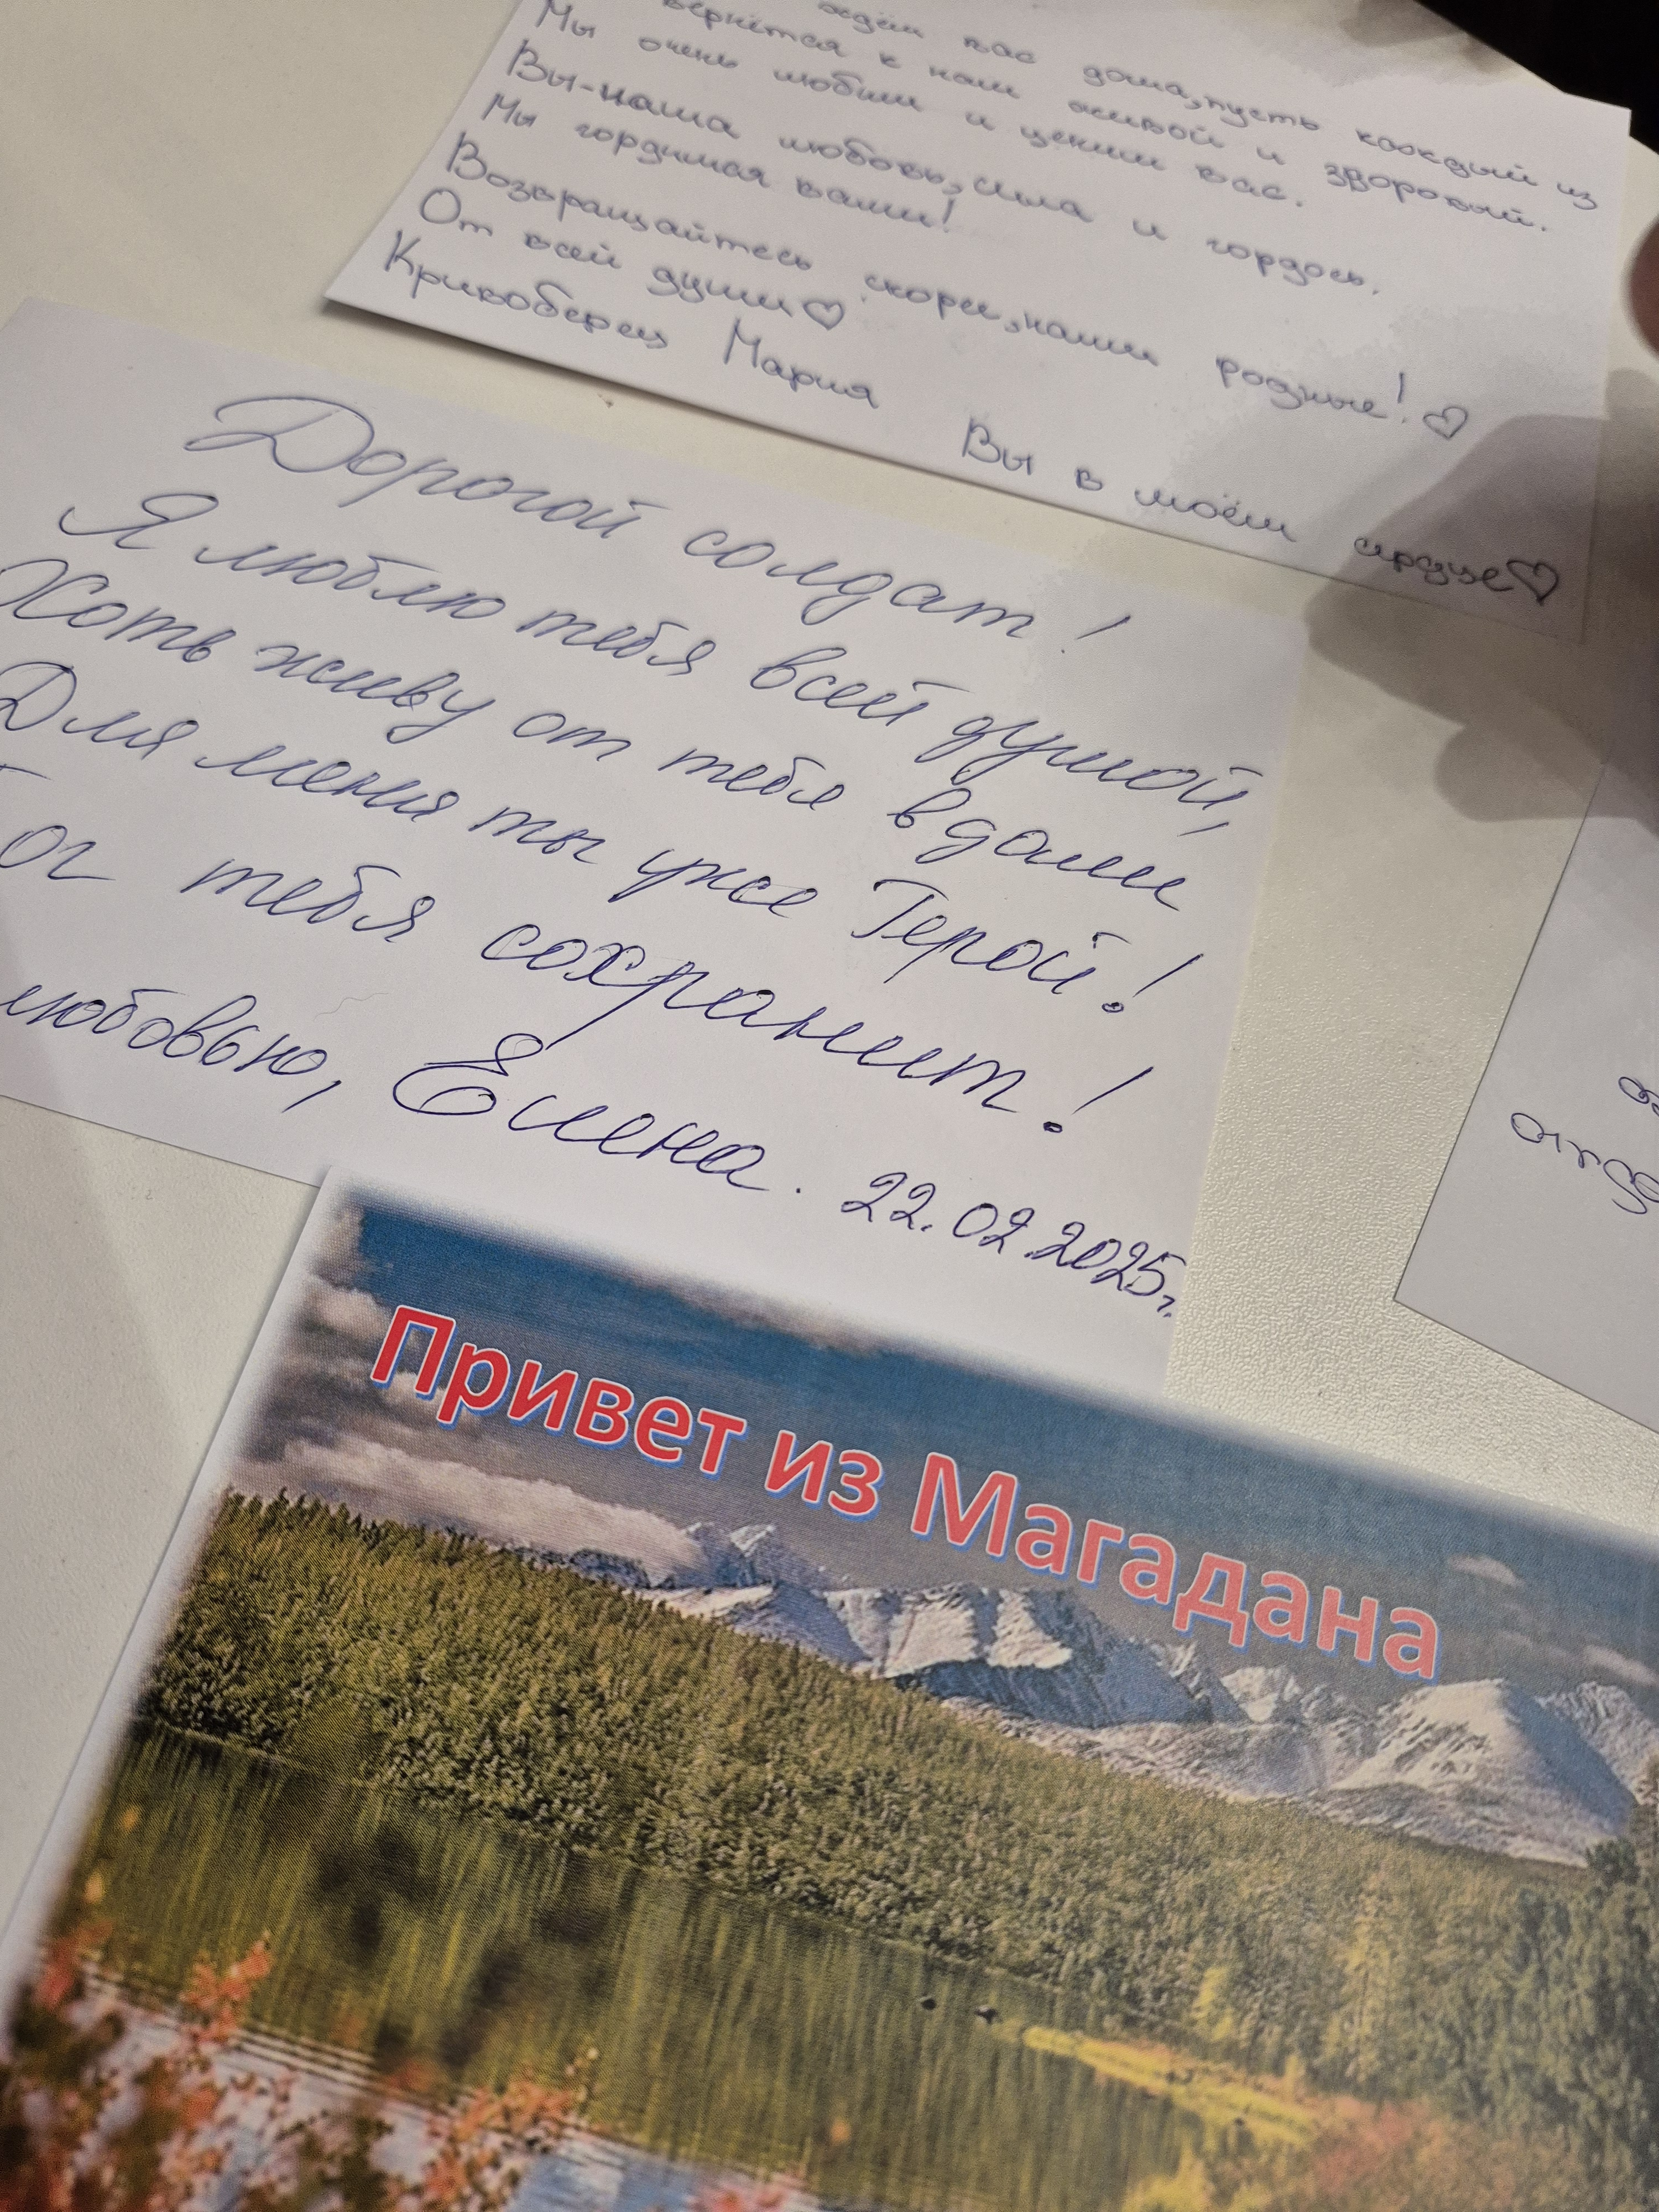 ждём вас дома, пусть каждый из
вернётся к нам живой и здоровый.
Мы очень любим и ценим вас.
Вы-наша любовь, сила и гордось.
Мы гордимся вами!
Возвращайтесь скорее, наши родные! ♡
От всей души ♡
Кривоберец Мария
Вы в моём сердце ♡
Дорогой солдат!
Я люблю тебя всей душой,
Хоть живу от тебя вдали
Для меня ты уже Герой!
ог тебя сохранит!
любовью, Елена. 22.02.2025г.
Привет из Магадана